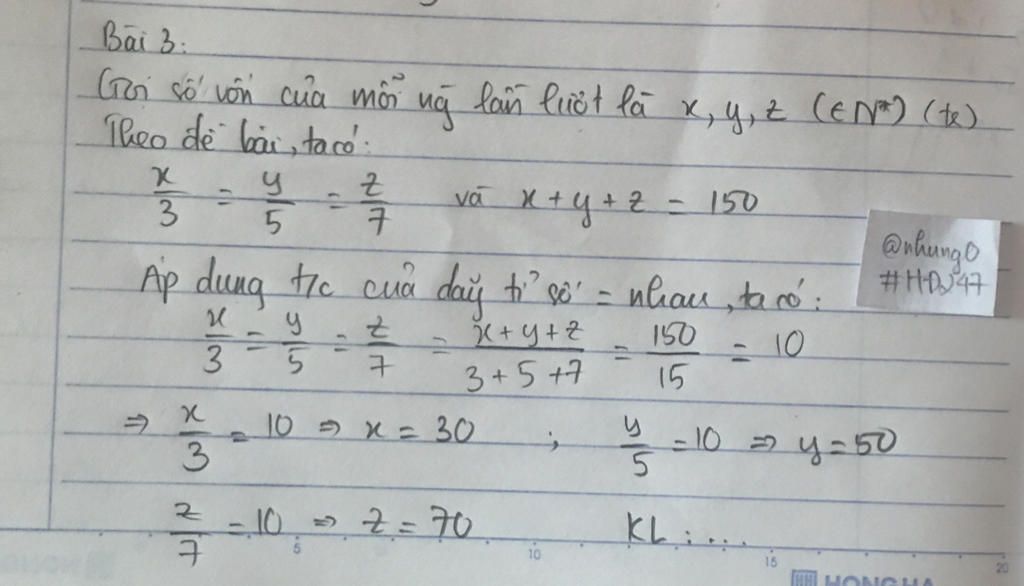 Bài 3:
Gọi số vốn của mỗi ng lần lượt là x, y, z (∈ N*) (tr)
Theo đề bài, ta có:
x/3 = y/5 = z/7 và x + y + z = 150
Áp dụng t/c của dãy tỉ số = nhau, ta có:
x/3 = y/5 = z/7 = (x + y + z)/(3 + 5 + 7) = 150/15 = 10
⇒ x/3 = 10 ⇒ x = 30 ; y/5 = 10 ⇒ y = 50
z/7 = 10 ⇒ z = 70 KL: ...
@nhung0
5 10 15 20
HONG HA